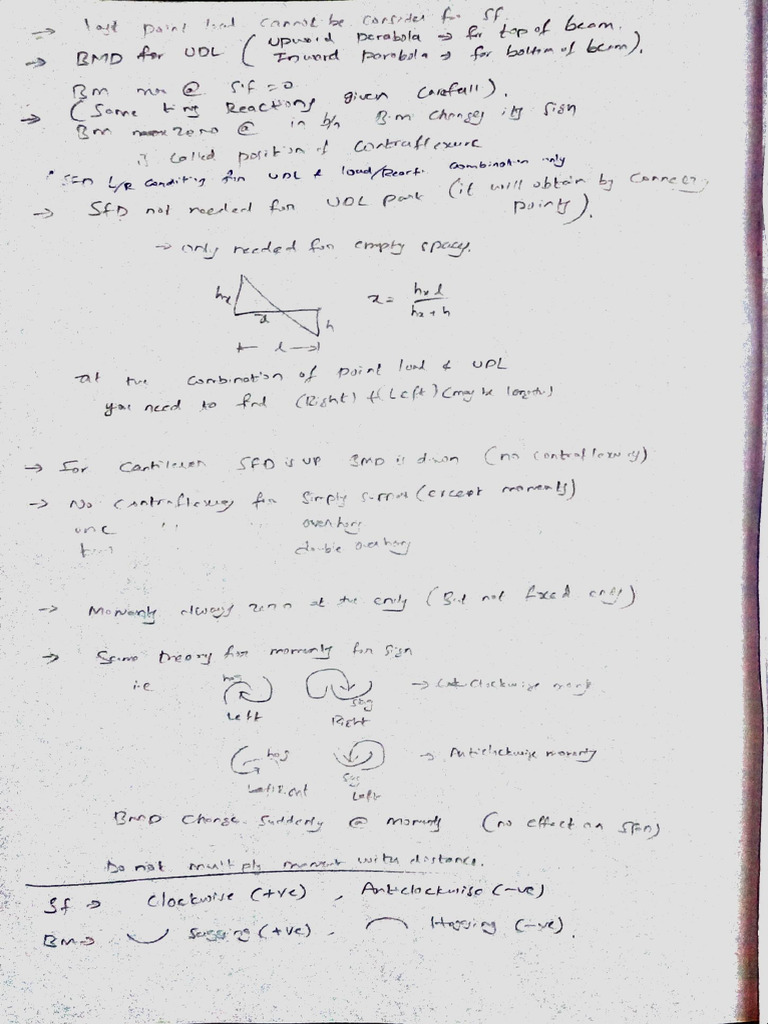 → last point load cannot be consider for Sf.
→ BMD for UDL ( Upward parabola → for top of beam.
Inward parabola → for bottom of beam).
Bm max @ S.f = 0
→ (Some times Reactions given carefull).
Bm zero @ in b/n B.m changes its sign
is called position of contraflexure
SFD L/R condition for UDL & load/React. combination only
→ SFD not needed for UDL part (it will obtain by connecting points).
→ only needed for empty space.
hx
x
h
l
x = hx l / hx + h
at the combination of point load & UDL
you need to find (Right) & (Left) (may be lengths)
→ for cantilever SFD is UP BMD is down (no contraflexure)
→ No contraflexure for simply (except moments)
one " overhang
double overhang
→ Moments always zero at the ends (But not fixed ends)
→ Same theory for moments for sign
i.e hog sag → Clockwise
Left Right
hog → Anticlockwise moments
sag
Left
BMD change suddenly @ moments (no effect on SFD)
Do not multiply moment with distance.
Sf → Clockwise (+ve) , Anticlockwise (-ve)
Bm → Sagging (+ve) , Hogging (-ve).